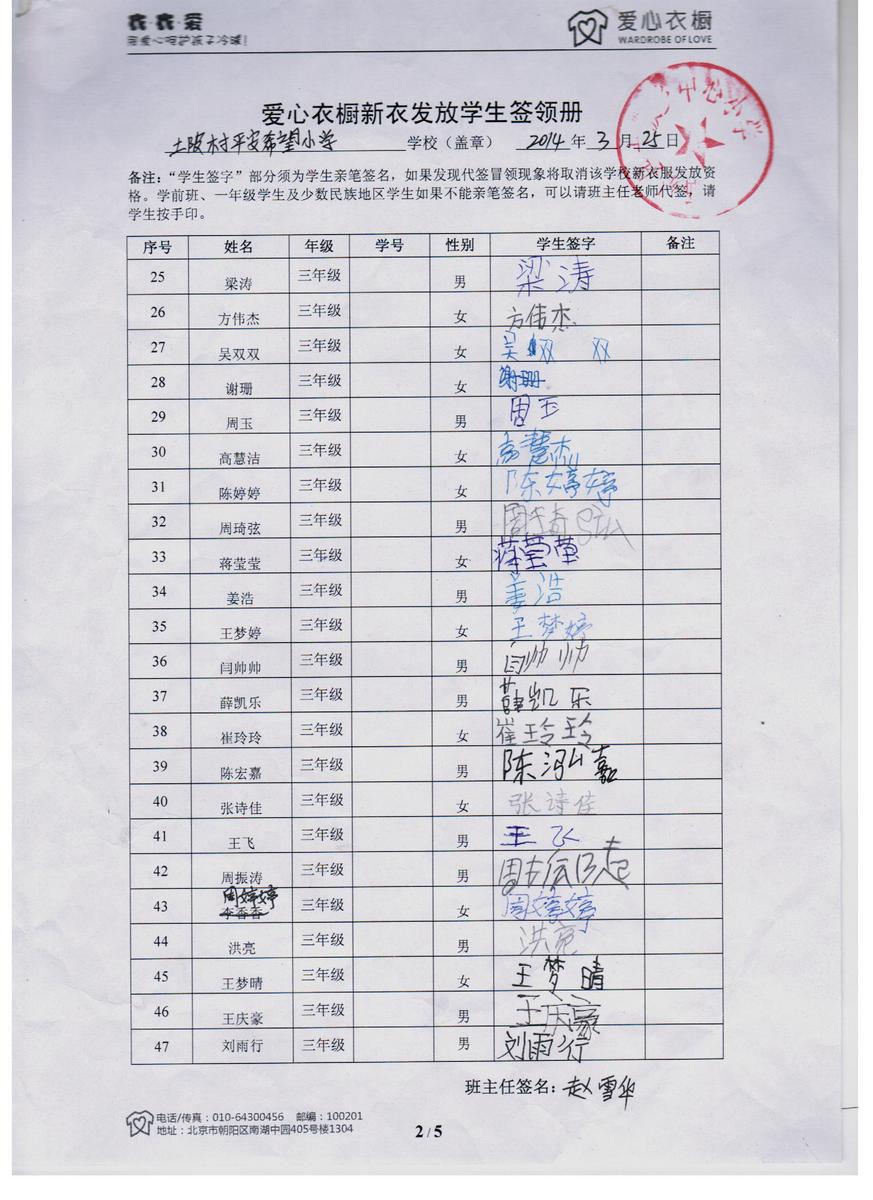 爱心衣橱
WARDROBE OF LOVE
用爱心呵护孩子冷暖!
爱心衣橱新衣发放学生签领册
土陂村平安希望小学 学校（盖章） 2014 年 3 月 25 日
中心小学
备注：“学生签字”部分须为学生亲笔签名，如果发现代签冒领现象将取消该学校新衣服发放资
格。学前班、一年级学生及少数民族地区学生如果不能亲笔签名，可以请班主任老师代签，请
学生按手印。
序号 姓名 年级 学号 性别 学生签字 备注
25 梁涛 三年级 男 梁涛
26 方伟杰 三年级 女 方伟杰
27 吴双双 三年级 女 吴双双
28 谢珊 三年级 女 谢珊
29 周玉 三年级 男 周玉
30 高慧洁 三年级 女 高慧
31 陈婷婷 三年级 女 陈婷婷
32 周琦弦 三年级 男 周琦弦
33 蒋莹莹 三年级 女 蒋莹莹
34 姜浩 三年级 男 姜浩
35 王梦婷 三年级 女 王梦婷
36 闫帅帅 三年级 男 闫帅帅
37 薛凯乐 三年级 男 薛凯乐
38 崔玲玲 三年级 女 崔玲玲
39 陈宏嘉 三年级 男 陈泓嘉
40 张诗佳 三年级 女 张诗佳
41 王飞 三年级 男 王飞
42 周振涛 三年级 男 周
43 周婷婷 李香香 三年级 女 周婷婷
44 洪亮 三年级 男 洪亮
45 王梦晴 三年级 女 王梦晴
46 王庆豪 三年级 男 王庆豪
47 刘雨行 三年级 男 刘雨行
班主任签名：赵雪华
电话/传真：010-64300456 邮编：100201
地址：北京市朝阳区南湖中园405号楼1304
2 / 5